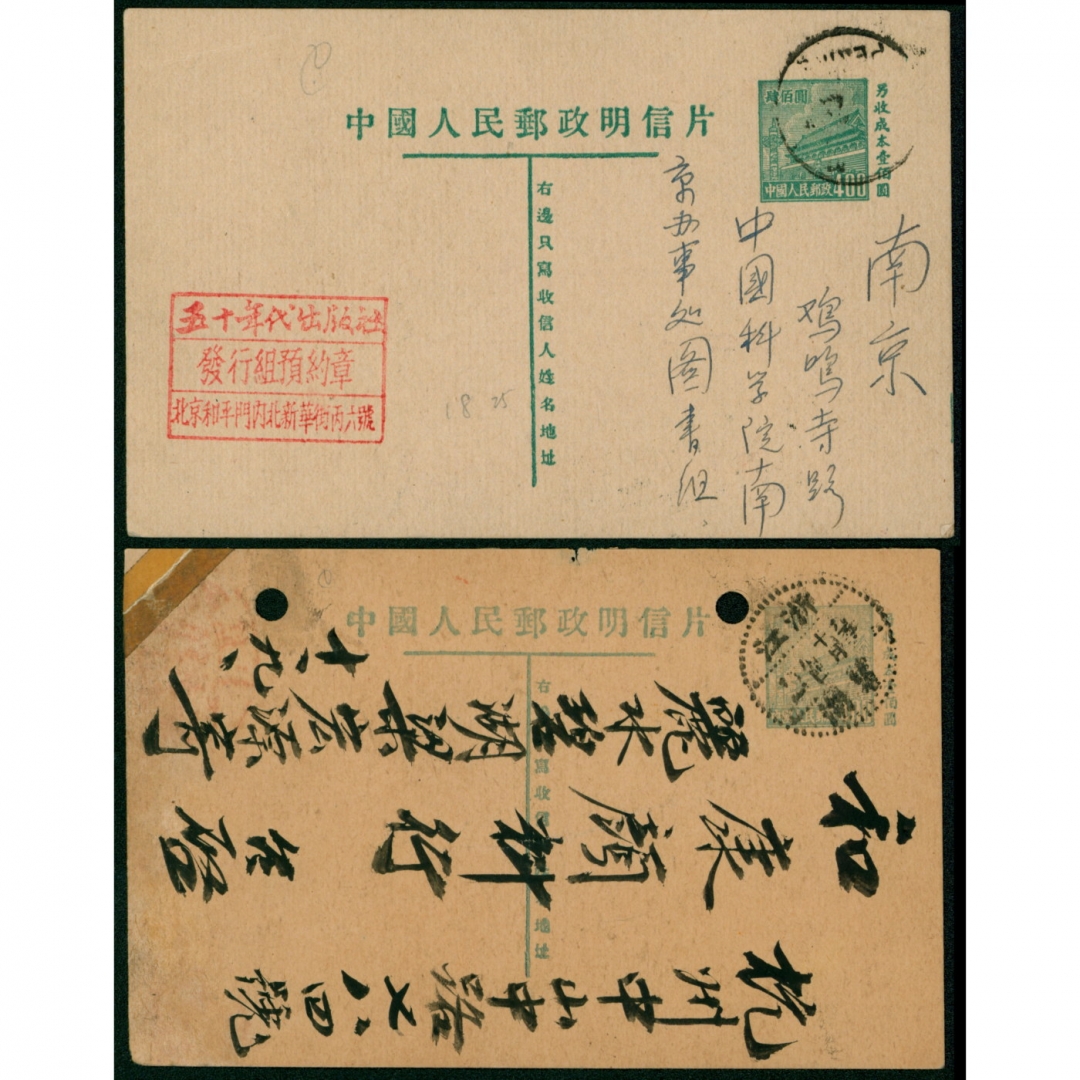 中國人民郵政明信片
肆佰圓
中國人民郵政 400
另收成本壹佰圓
右邊只寫收信人姓名地址
南京
鸡鸣寺路
中國科学院南
京办事处图書组
五十年代出版社
發行組預約章
北京和平門內北新華街丙六號
18 25
中國人民郵政明信片
浙江
碧湖
右
寫收信
地址
杭州中山中路七八四號
和康顏料行
台啓
麗水碧湖梁宏源寄
十、九、一